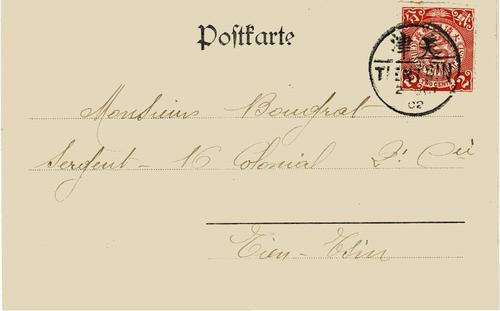 Postkarte
天津
TIENTSIN
2
02
Monsieur Bougrat
Sergent - 16 Colonial 2e Cie
Tien-Tsin